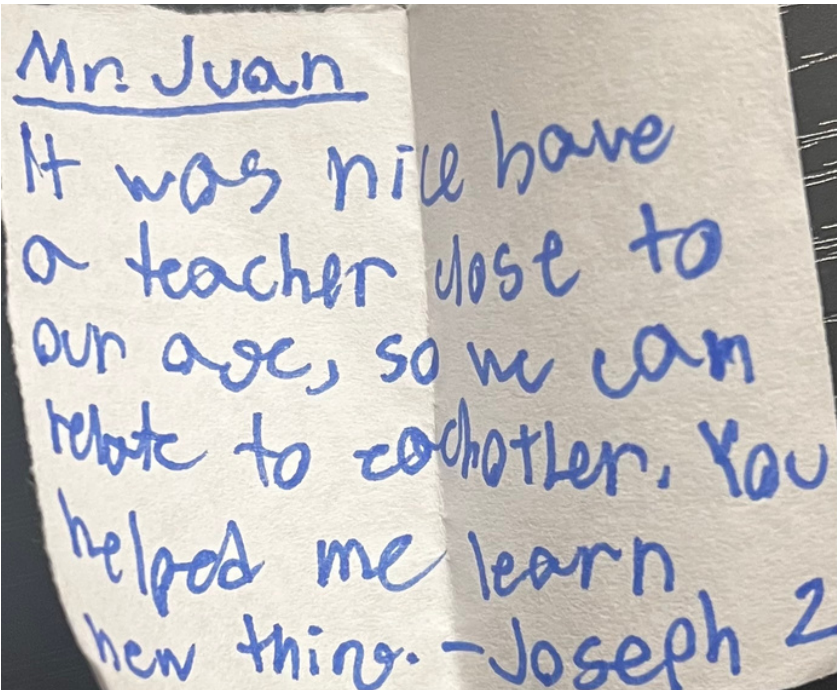 Mr. Juan
It was nice have
a teacher close to
our age, so we can
relate to eachother. You
helped me learn
new thing. -Joseph 2